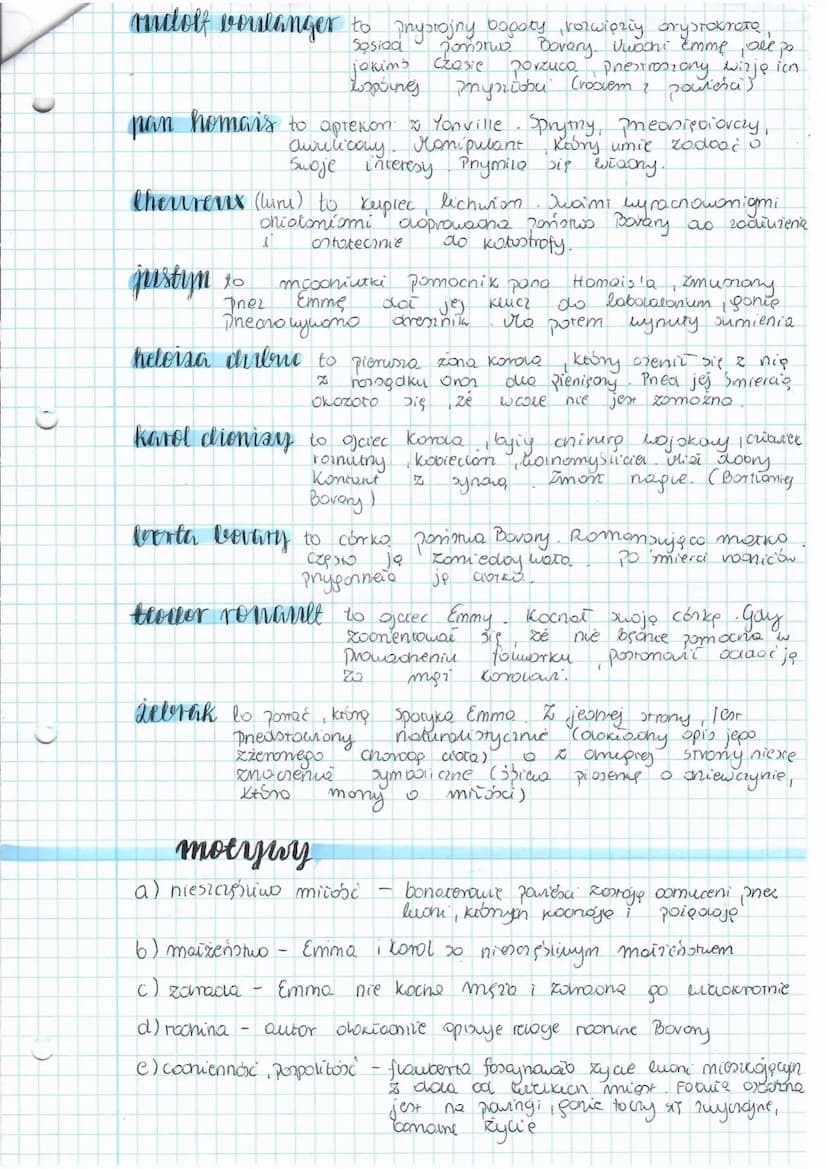 rudolf boulanger to przystojny bogaty, rozwiązły arystokrata,
sąsiad państwa Bovary. Uwodzi Emmę, ale po
jakimś czasie porzuca, przestraszony wizją ich
wspólnej przyszłości (rodem z powieści)
pan homais to aptekarz z Yonville. Sprytny, przedsiębiorczy,
dwulicowy. Manipulant, który umie zadbać o
swoje interesy. Przymila się władzy.
lheureux (luru) to kupiec, lichwiarz. Swoimi wyrachowanymi
działaniami doprowadza państwo Bovary do zadłużenia
i ostatecznie do katastrofy.
justyn to młodziutki pomocnik pana Homais'a, zmuszony
przez Emmę dał jej klucz do laboratorium, gdzie
przechowywano arszenik. Ma potem wyrzuty sumienia
heloiza dubuc to pierwsza żona Karola, który ożenił się z nią
z rozsądku oraz dla pieniędzy. Przed jej śmiercią
okazało się, że wcale nie jest zamożna.
karol dionizy to ojciec Karola, były chirurg wojskowy, człowiek
rozrzutny, kobieciarz, wolnomyśliciel. Miał dobry
kontakt z synową. Zmarł nagle. (Bartłomiej
Bovary)
berta bovary to córka państwa Bovary. Romansująca matka
często ją zaniedbywała. Po śmierci rodziców
przygarnęła ją ciotka.
teodor rouault to ojciec Emmy. Kochał swoją córkę. Gdy
zorientował się, że nie będzie pomocna w
prowadzeniu folwarku, postanowił oddać ją
za mąż Karolowi.
żebrak to postać, którą spotyka Emma. Z jednej strony, jest
przedstawiony naturalistycznie (dokładny opis jego
zżeranego chorobą ciała) a z drugiej strony niesie
znaczenie symboliczne (śpiewa piosenkę o dziewczynie,
która marzy o miłości)
motywy
a) nieszczęśliwa miłość – bohaterowie powieści zostają odrzuceni przez
ludzi, których kochają i pożądają
b) małżeństwo – Emma i Karol są nieszczęśliwym małżeństwem
c) zdrada – Emma nie kocha męża i zdradza go wielokrotnie
d) rodzina – autor dokładnie opisuje relacje rodzinne Bovary
e) codzienność, pospolitość – flauberta fascynowało życie ludzi mieszkających
z dala od wielkich miast. Fabuła osadzona
jest na prowincji, gdzie toczy się zwyczajne,
banalne życie